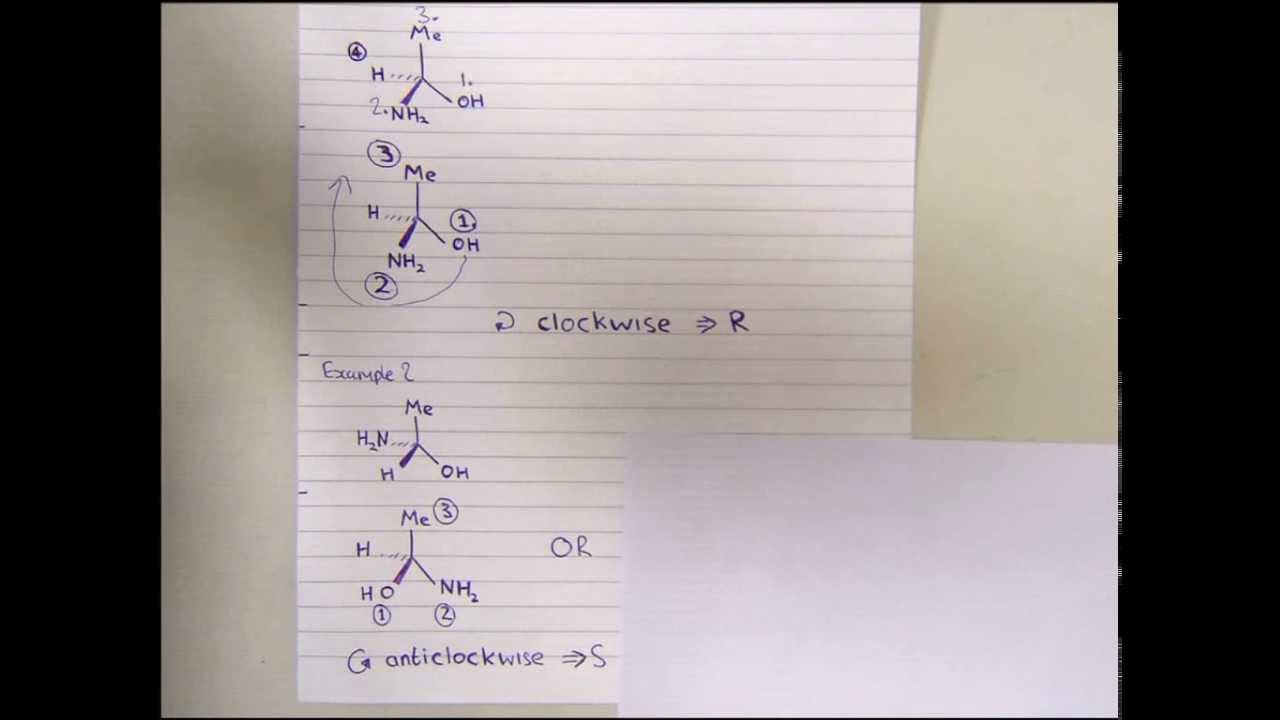 3.
Me
④
H
1.
OH
2. NH₂
③
Me
H
①.
OH
NH₂
②
clockwise ⇒ R
Example 2
Me
H₂N
H
OH
Me ③
H
OR
HO
NH₂
① ②
anticlockwise ⇒ S